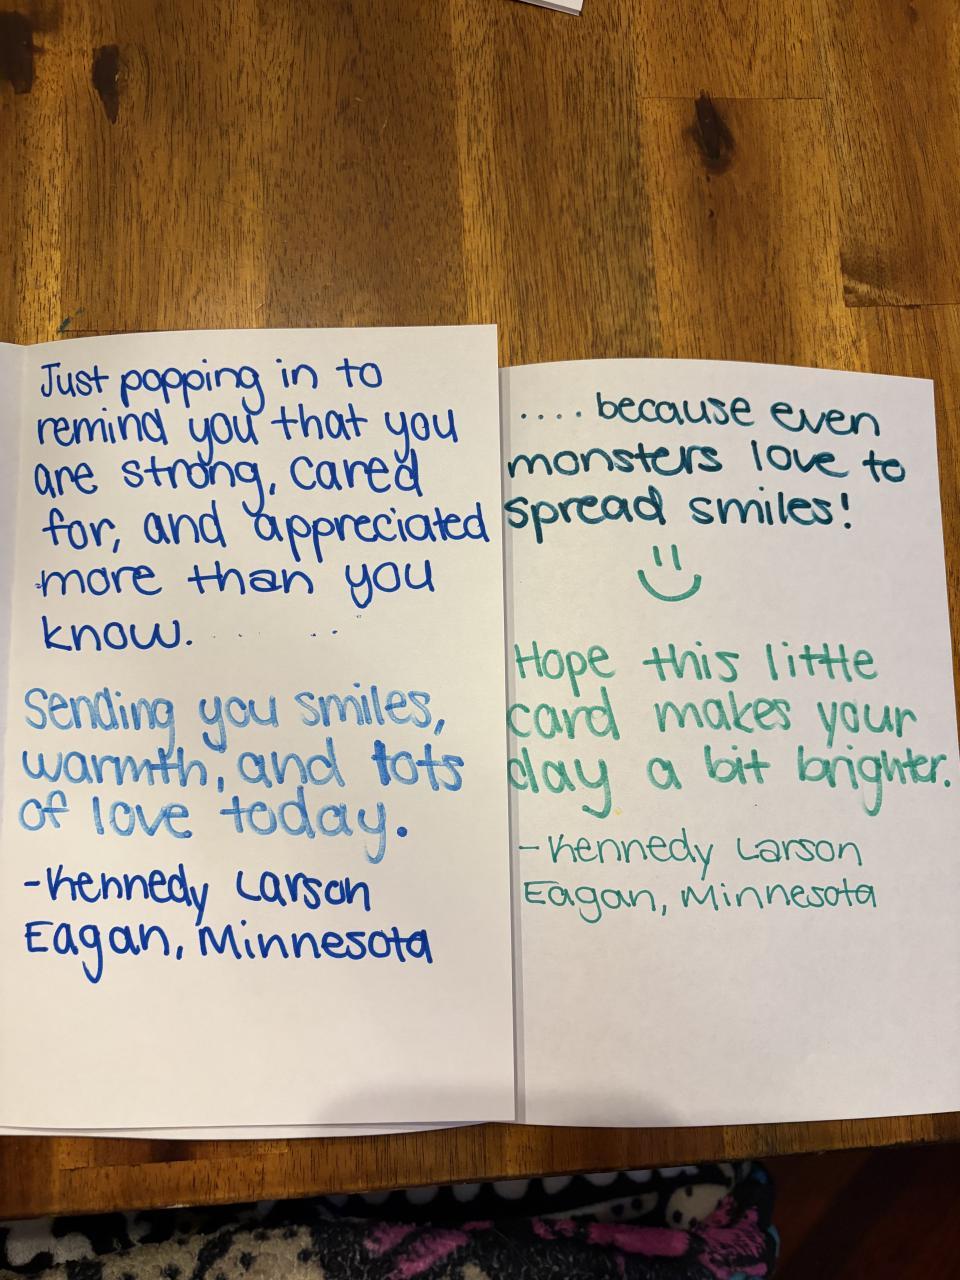 Just popping in to
remind you that you
are strong, cared
for, and appreciated
more than you
know. . . . .
Sending you smiles,
warmth, and tots
of love today.
-Kennedy Larson
Eagan, Minnesota
.... because even
monsters love to
spread smiles!
Hope this little
card makes your
day a bit brighter.
-Kennedy Larson
Eagan, Minnesota